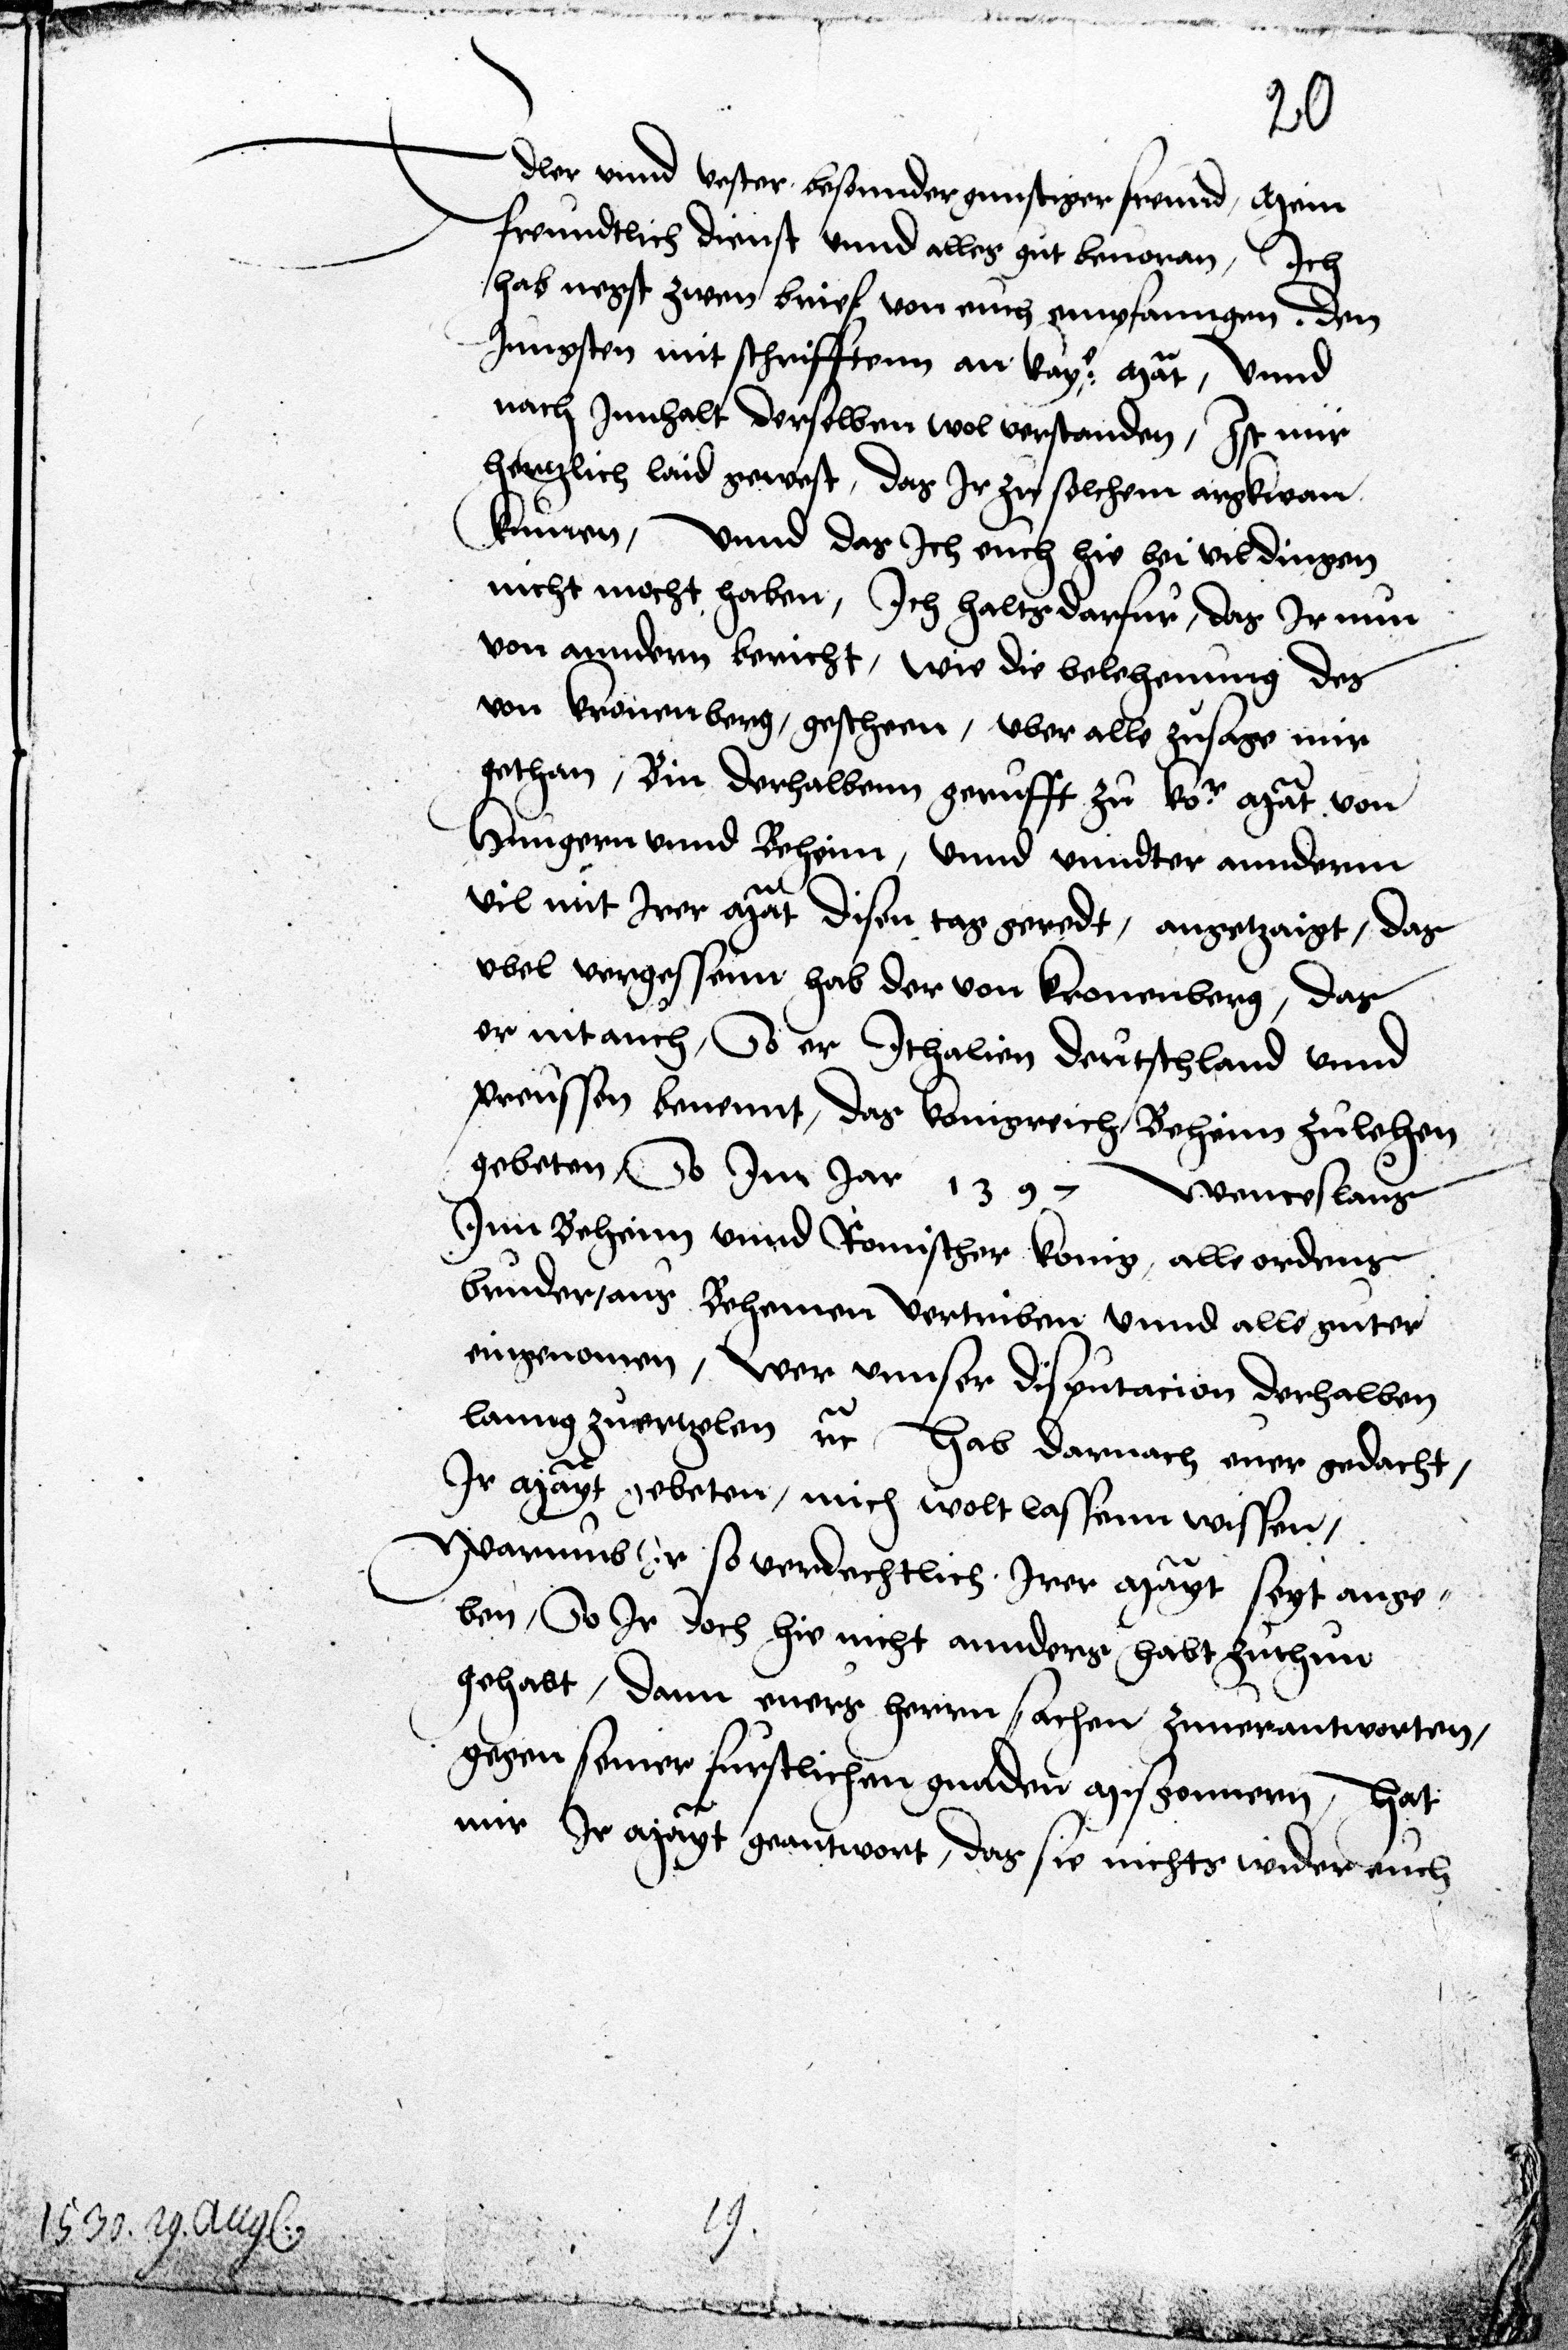 20
Edler vnnd vester besonnder gunstiger freund, Mein
freundtlich dienst vnnd alles gut beuoran, Ich
hab negst zwen brief von euch empfanngen. den
Jungsten mit schrifftenn an kay:e Mat, Vnnd
nach Innhalt derselben wol verstanden, Ist mir
hertzlich laid gewest, das Ir zu solchem argkwan
kumen, Vnnd das Ich euch hie bei vil dingen
nicht mocht haben, Ich halts darfur, das Ir nun
von anndern bericht, wie die belehenung des
von kronenberg, gescheen, vber alle zusage mir
gethan, Bin derhalbenn gerufft zu kor Mat von
Hungern vnnd Beheim, Vnnd vnndter annderm
vil mit Irer Mat disen tag geredt, angetzaigt, das
vbel vergessenn hab der von kronenberg, das
er nit auch, So er Ithalien deutschland vnnd
preussen benennt, das konigreich Beheim zulehen
gebeten, So Im Jar 1397 Wenceslaus
Inn Beheim vnnd Romischer konig, alle ordens
bruder, aus Behemen vertriben vnnd alle guter
eingenomen, Wer vnnser disputacion derhalben
lanng zuertzelen etc Hab darnach euer gedacht,
Ir Mayt gebeten, mich wolt lassenn wissen,
Warumb Ir so verdechtlich Irer Mayt seyt ange-
ben, So Ir doch hie nicht annders habt zuthun
gehabt, dann euers herrn sachen zuuerantworten,
gegen seiner furstlichen gnaden misgonnern, Hat
mir Ir Mayt geantwort, das sie nichts wider euch
1530. 29. Aug
19.